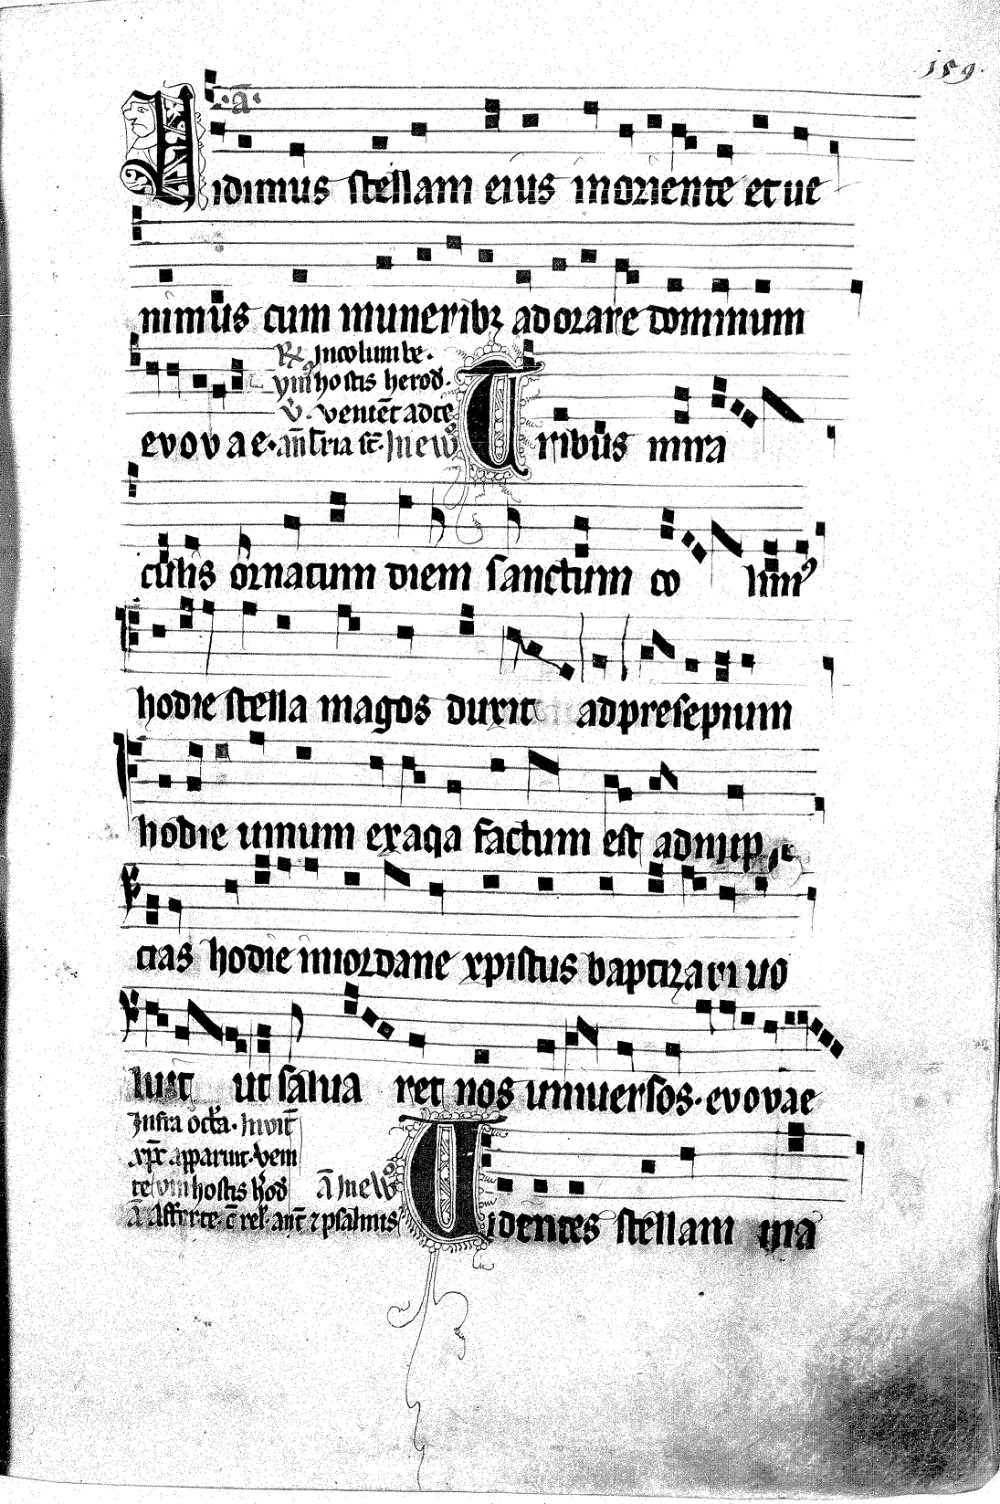 159.
a̅.
Vidimus stellam eius in oriente et ue
nimus cum muneribꝫ adorare dominum
℟ Incolumbe.
ym̅ hostis herod.
V̕. venie̅t adte
evovae. an̅ Fria sc̅. Inew̅ Tribus mira
culis ornatum diem sanctum co limꝰ
hodie stella magos duxit ad presepium
hodie uinum ex aqa factum est ad nup
cias hodie in iordane xp̅istus baptizari uo
luit ut salua ret nos uniuersos. evovae
Infra octa̅. Inuit̅
xp̅c apparuit. Veni
te ym̅ hostis h̅od a̅ Inew̅
a̅ Afferte. c̅ rel̅. ant̅ ⁊ psalmis Videntes stellam ma